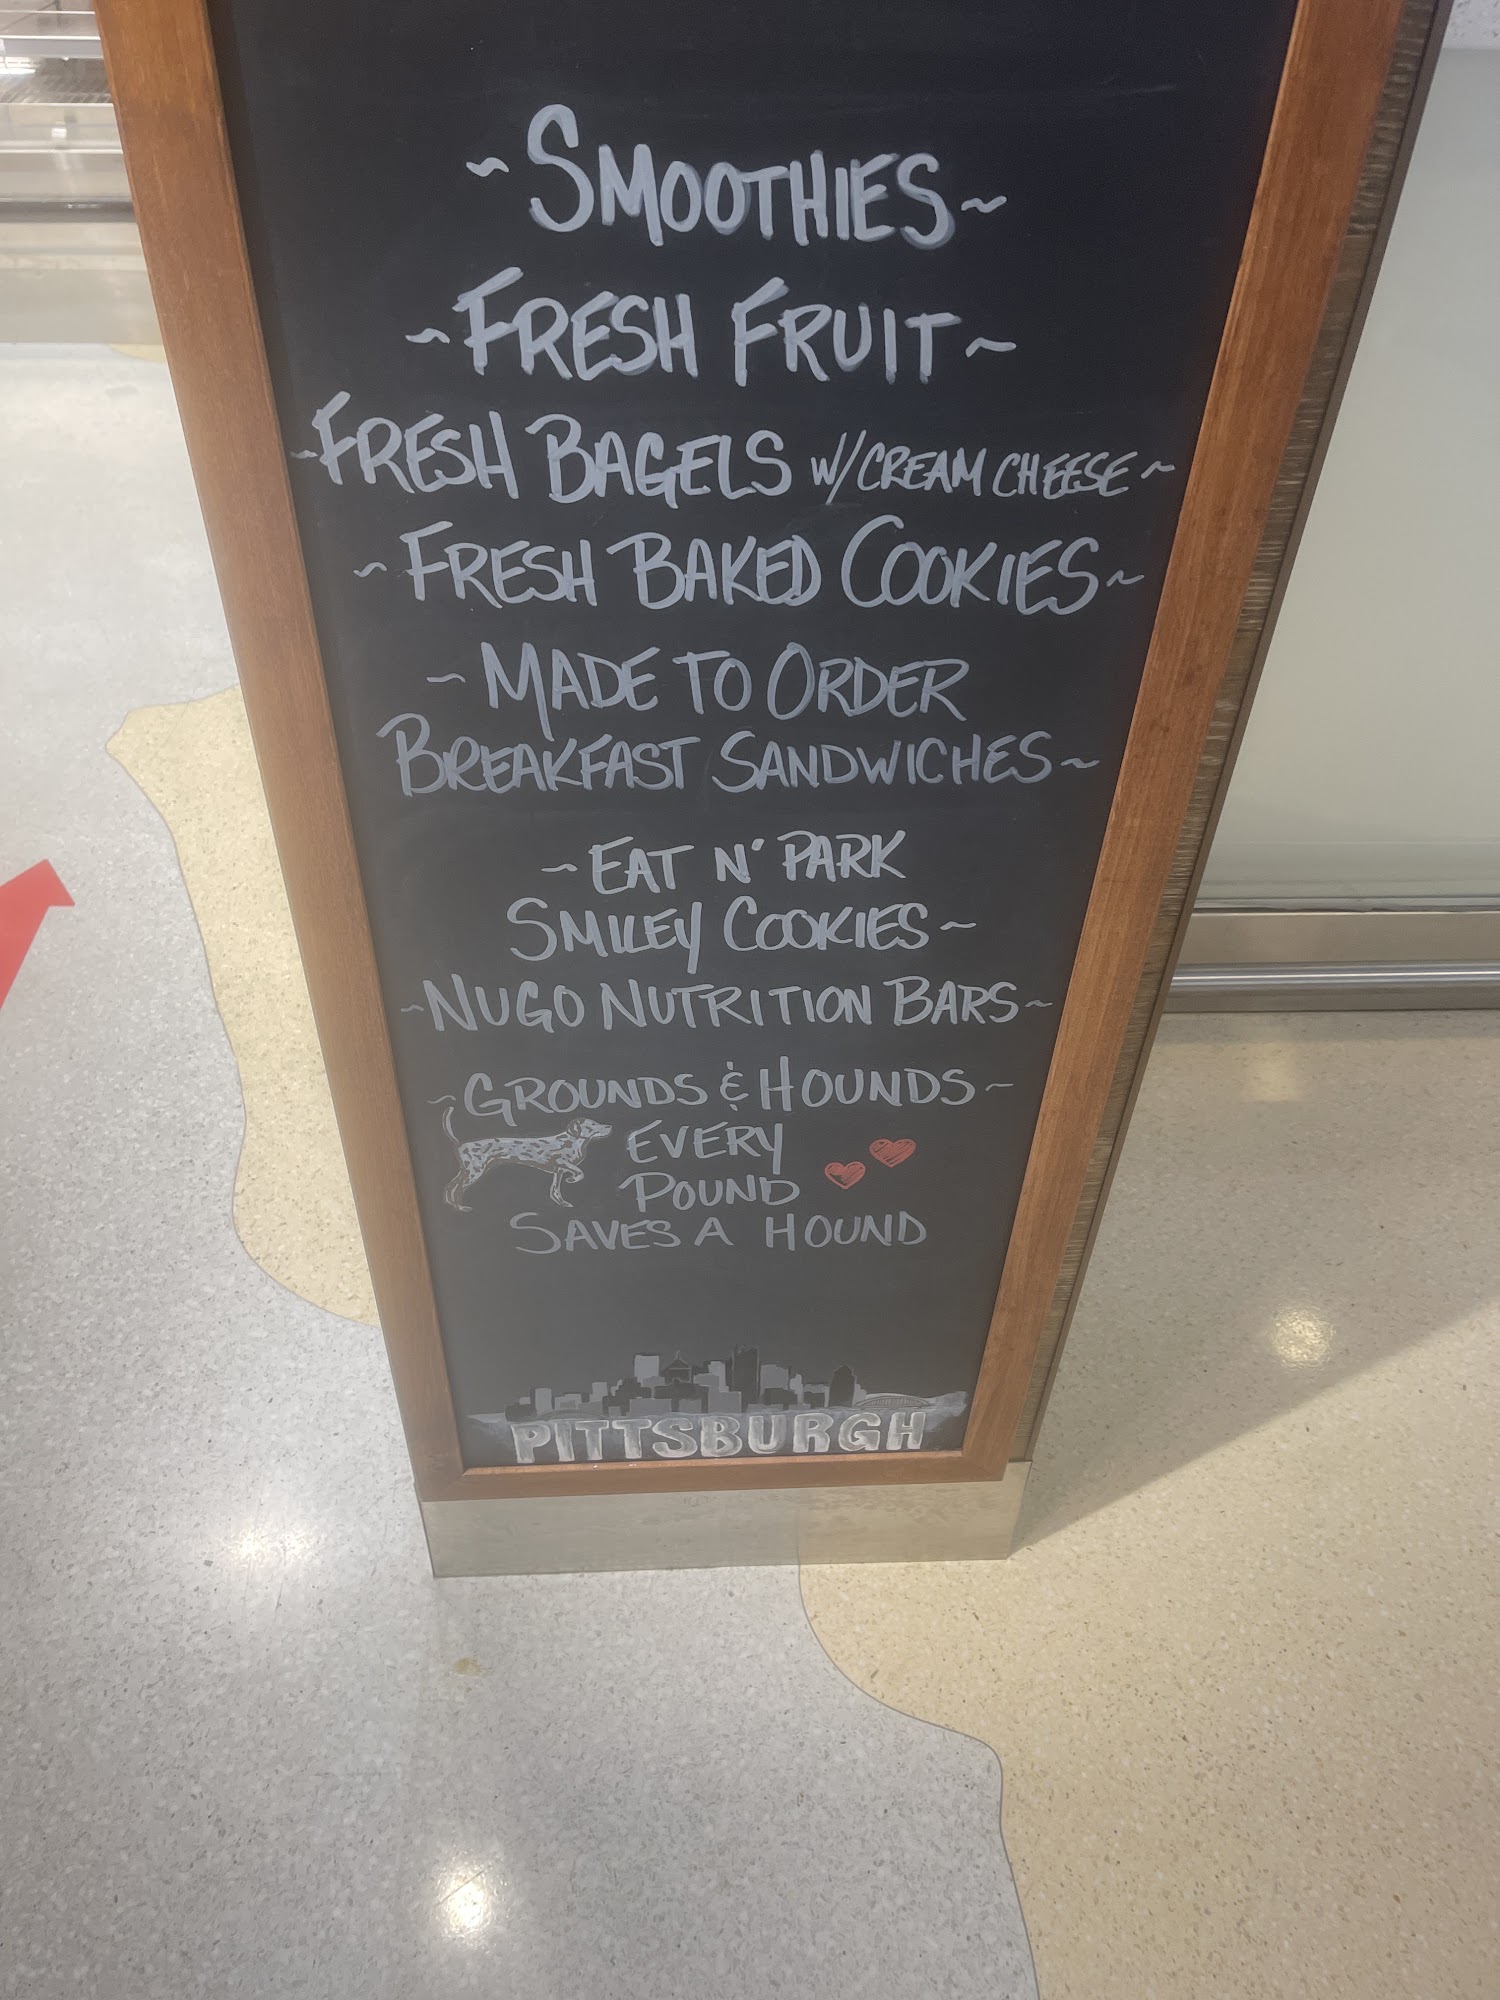 ~SMOOTHIES~
~FRESH FRUIT~
~FRESH BAGELS W/CREAM CHEESE~
~FRESH BAKED COOKIES~
~MADE TO ORDER
BREAKFAST SANDWICHES~
~EAT N' PARK
SMILEY COOKIES~
~NUGO NUTRITION BARS~
~GROUNDS & HOUNDS~
EVERY
POUND
SAVES A HOUND
PITTSBURGH